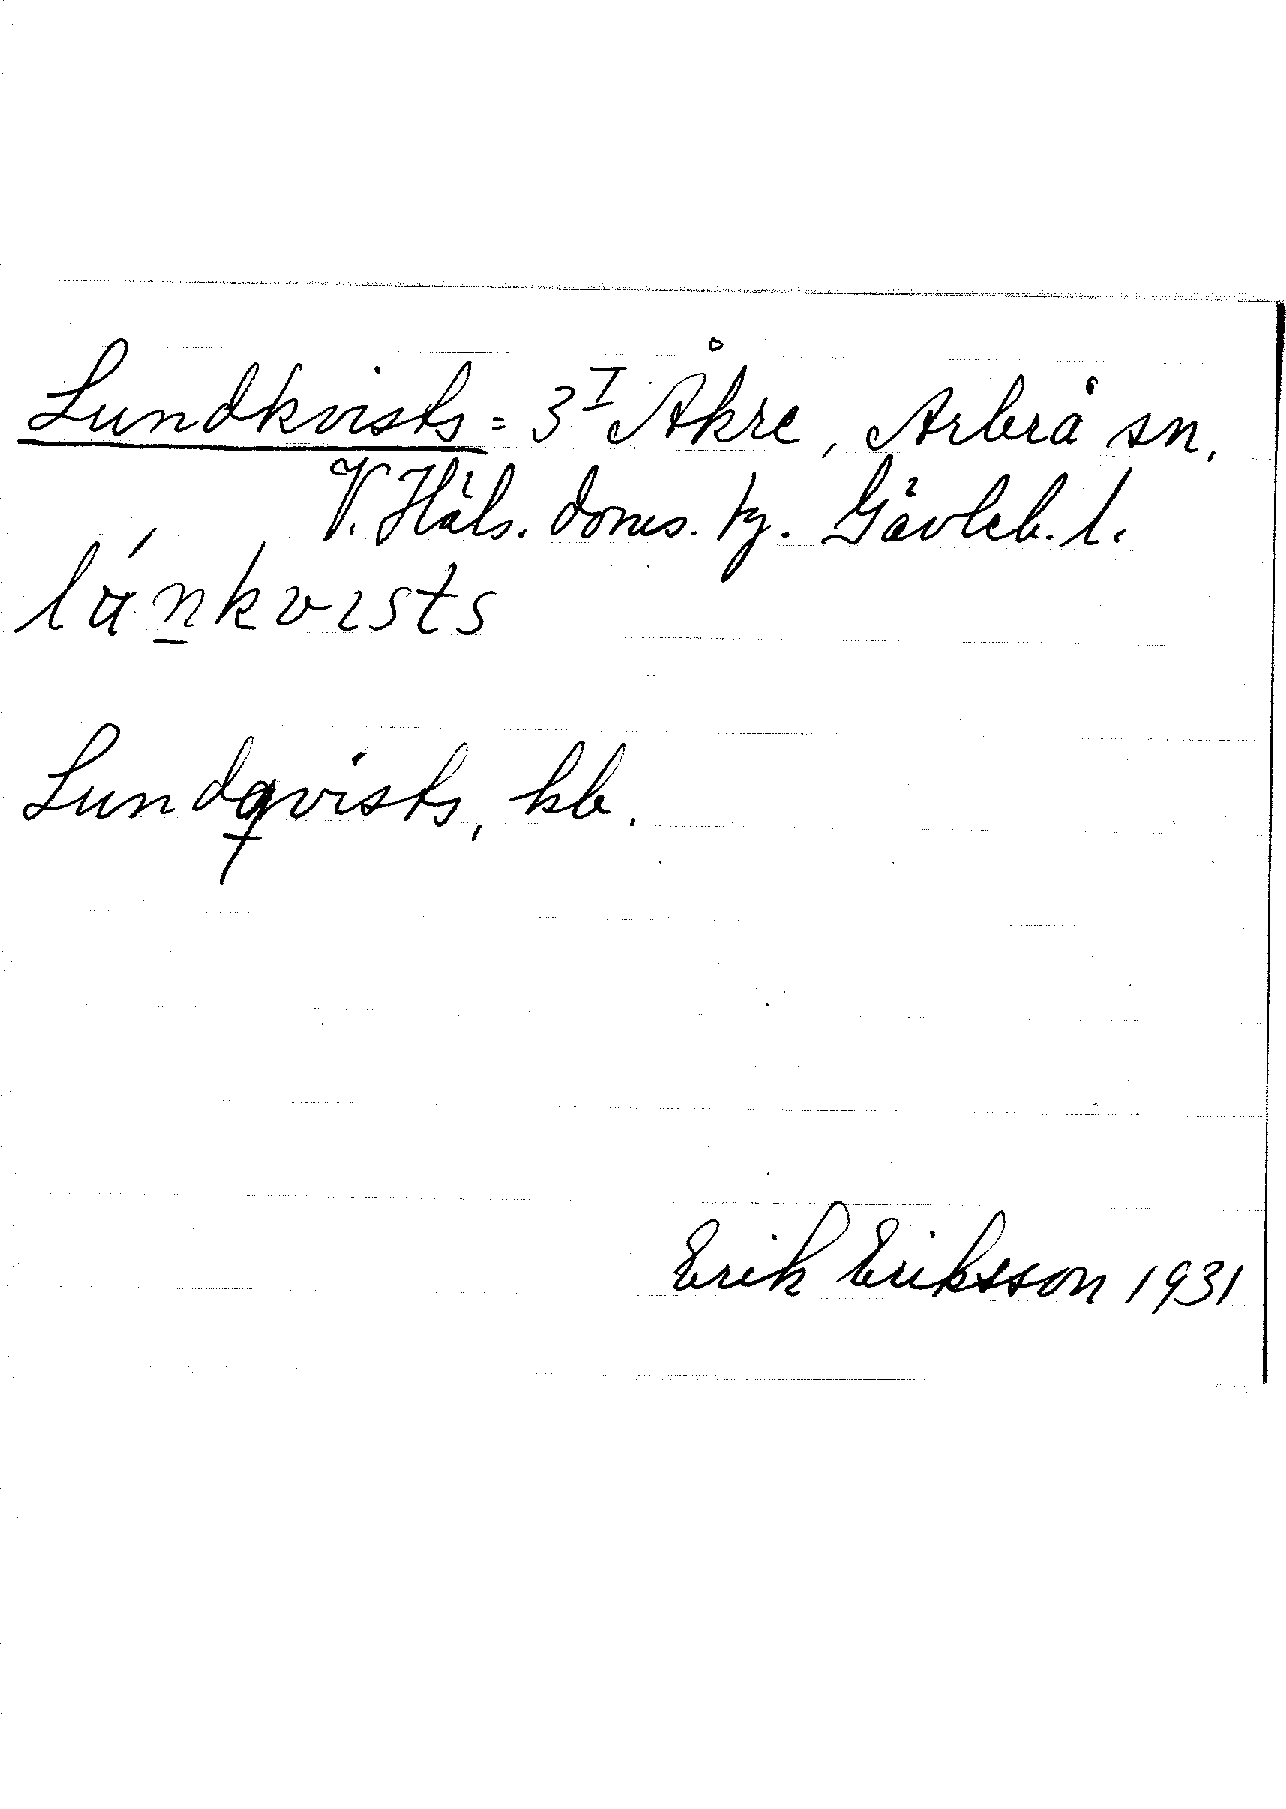 Lundkvists = 3^I Åkre, Arbrå sn.
V. Häls. doms. tg. Gävleb. l.
lánkvists
Lundqvists, kb.
Erik Eriksson 1931